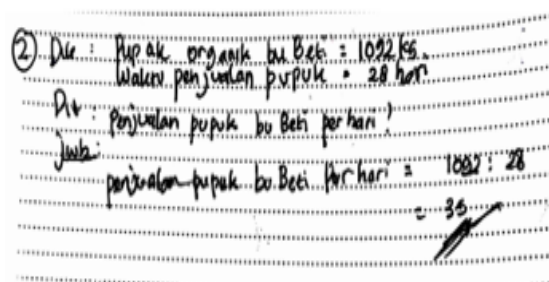 ② Dik : Pupuk organik bu Beti = 1092 kg.
Waktu penjualan pupuk = 28 hari
Dit : Penjualan pupuk bu Beti per hari?
Jwb:
penjualan pupuk bu Beti Per hari = 1092 : 28
= 35